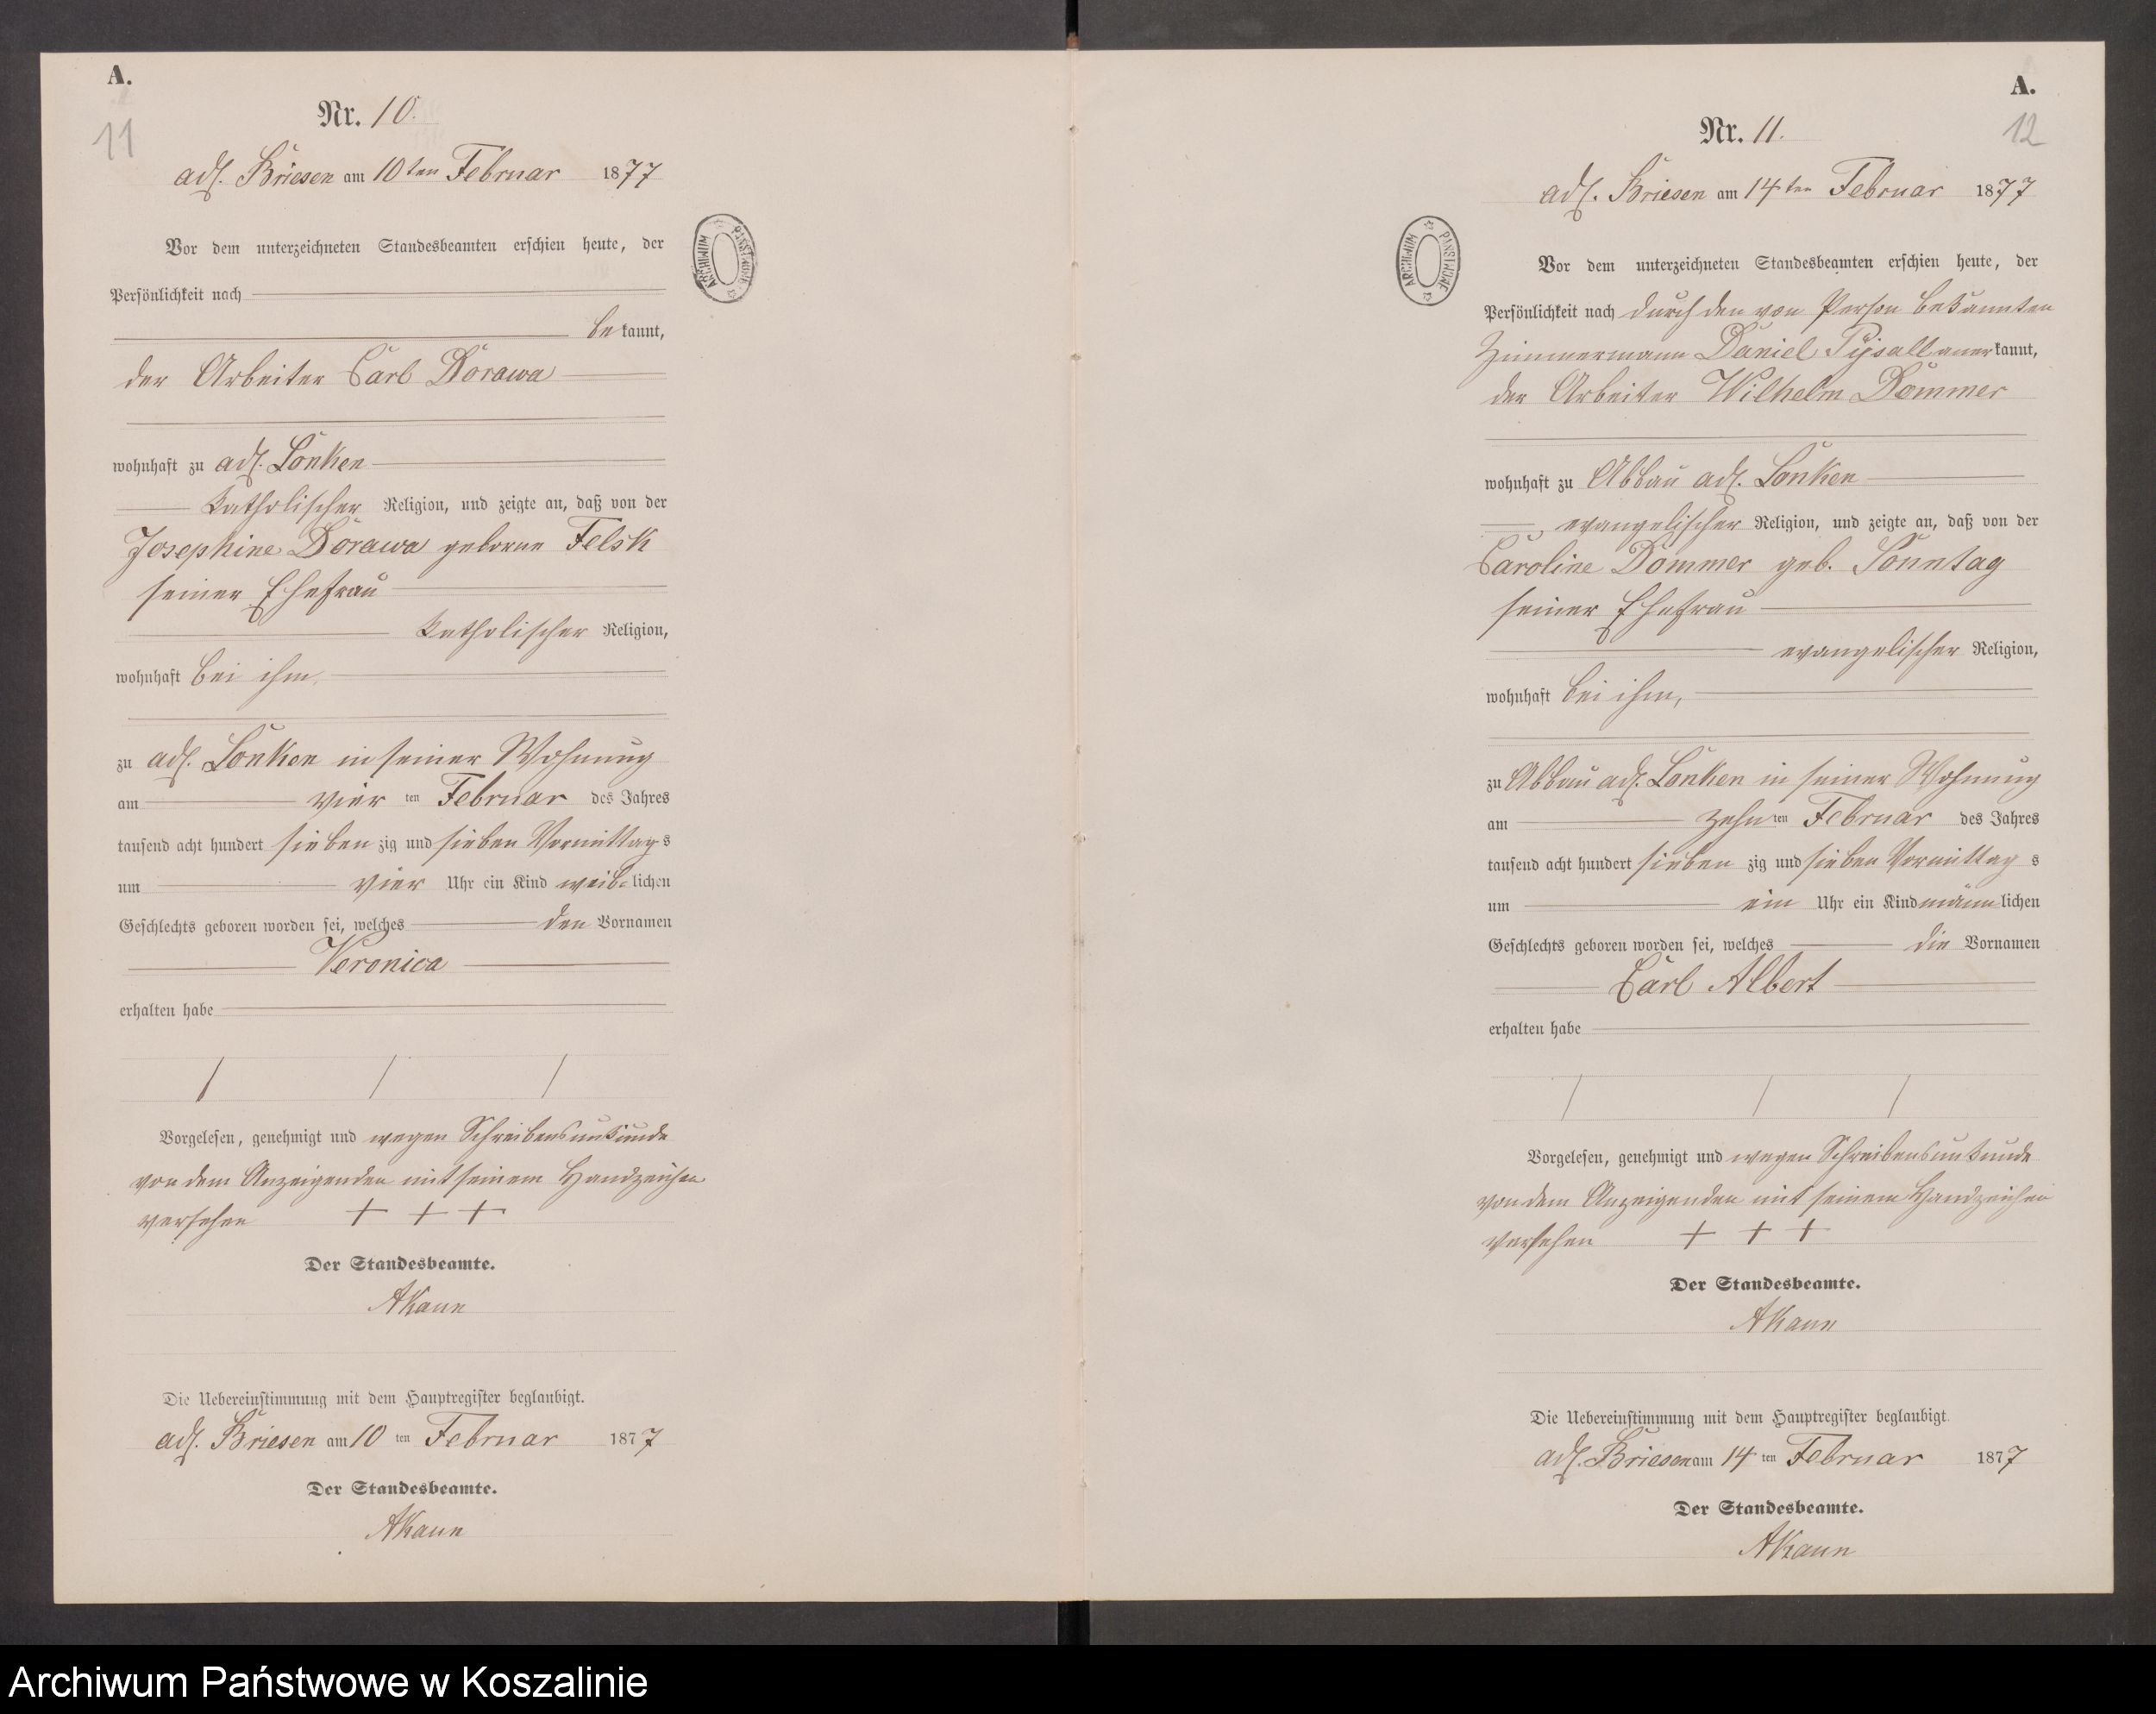 A.
11
Nr. 10.
adl. Briesen am 10ten Februar 1877
Vor dem unterzeichneten Standesbeamten erschien heute, der
Persönlichkeit nach
be kannt,
der Arbeiter Carl Dorawa
wohnhaft zu adl. Lonken
katholischer Religion, und zeigte an, daß von der
Josephine Dorawa geborne Felsk
seiner Ehefrau
katholischer Religion,
wohnhaft bei ihm,
zu adl. Lonken in seiner Wohnung
am vier ten Februar des Jahres
tausend acht hundert sieben zig und sieben Vormittag s
um vier Uhr ein Kind weib- lichen
Geschlechts geboren worden sei, welches den Vornamen
Veronica
erhalten habe
Vorgelesen, genehmigt und wegen Schreibensunkunde
von dem Anzeigenden mit seinem Handzeichen
versehen + + +
Der Standesbeamte.
AKann
Die Uebereinstimmung mit dem Hauptregister beglaubigt.
adl. Briesen am 10 ten Februar 1877
Der Standesbeamte.
AKann
ARCHIWUM PAŃSTWOWE
A.
12
Nr. 11.
adl. Briesen am 14ten Februar 1877
Vor dem unterzeichneten Standesbeamten erschien heute, der
Persönlichkeit nach durch den von Person bekannten
Zimmermann Daniel anerkannt,
der Arbeiter Wilhelm Dommer
wohnhaft zu Abbau adl. Lonken
evangelischer Religion, und zeigte an, daß von der
Caroline Dommer geb. Sonntag
seiner Ehefrau
evangelischer Religion,
wohnhaft bei ihm,
zu Abbau adl. Lonken in seiner Wohnung
am zehn ten Februar des Jahres
tausend acht hundert sieben zig und sieben Vormittag s
um ein Uhr ein Kind männ lichen
Geschlechts geboren worden sei, welches die Vornamen
Carl Albert
erhalten habe
Vorgelesen, genehmigt und wegen Schreibensunkunde
von dem Anzeigenden mit seinem Handzeichen
versehen + + +
Der Standesbeamte.
AKann
Die Uebereinstimmung mit dem Hauptregister beglaubigt.
adl. Briesen am 14 ten Februar 1877
Der Standesbeamte.
AKann
ARCHIWUM PAŃSTWOWE
Archiwum Państwowe w Koszalinie